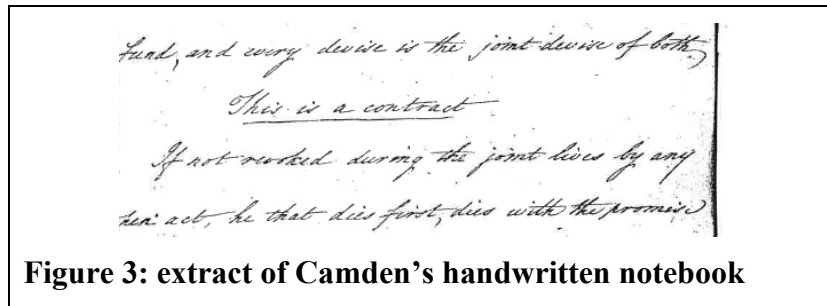 Fund, and every devise is the joint devise of both,
This is a contract
If not revoked during the joint lives by any
act, he that dies first, dies with the promise
Figure 3: extract of Camden's handwritten notebook